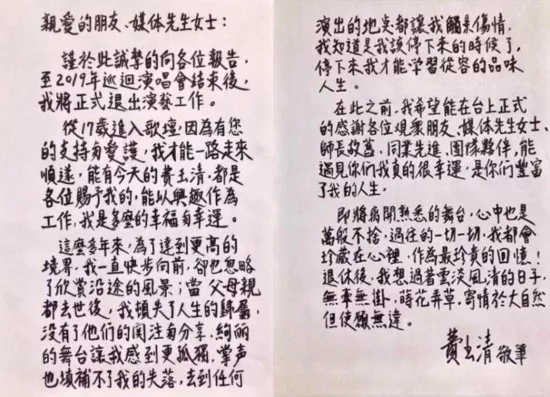 親愛的朋友、媒体先生女士：
謹於此誠摯的向各位報告，
至2019年巡迴演唱會結束後，
我將正式退出演藝工作。
從17歲進入歌壇，因為有您
的支持与愛護，我才能一路走來
順遂，能有今天的費玉清，都是
各位賜予我的，能以興趣作為
工作，我是多麼的幸福与幸運。
這麼多年來，為了達到更高的
境界，我一直快步向前，卻也忽略
了欣賞沿途的風景；當父母親
都去世後，我頓失了人生的歸屬，
沒有了他們的関注与分享，絢麗
的舞台讓我感到更孤獨，掌声
也填補不了我的失落，去到任何
演出的地点都讓我觸景傷情，
我知道是我該停下來的時候了，
停下來我才能学習從容的品味
人生。
在此之前，我希望能在台上正式
的感謝各位現衆朋友、媒体先生女士、
師長故舊、同業先進、團隊夥伴，能
遇見你們我真的很幸運，是你們豐富
了我的人生。
即將離開熟悉的舞台，心中也是
萬般不捨，過往的一切一切，我都會
珍藏在心裡，作為最珍貴的回憶！
退休後，我想過著雲淡風清的日子，
無牽無掛，蒔花弄草，寄情於大自然
但使願無違。
費玉清 敬筆